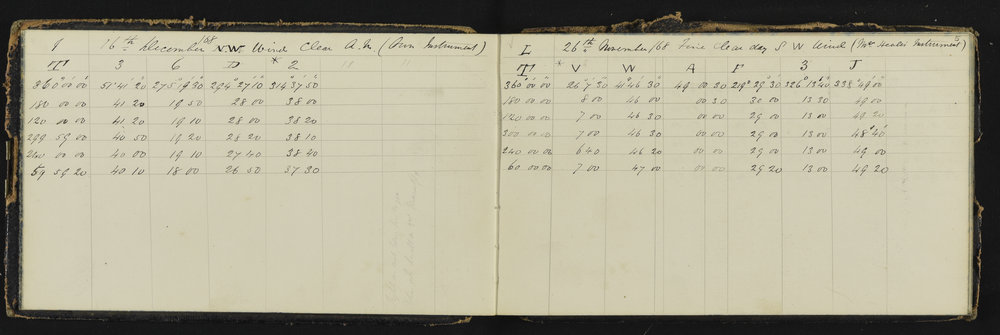 1 16th December /68 N.W. Wind Clear A.M. (Own Instrument)
T 3 6 D * 2
360° 00' 00" 51° 41' 20 275° 19' 30 294° 27' 10 314° 37' 50
180 00 00 41 20 19 50 28 00 38 00
120 00 00 41 20 19 10 28 00 38 20
299 59 00 40 50 19 20 28 20 38 10
240 00 00 40 00 19 10 27 40 38 40
59 59 20 40 10 18 00 26 50 37 30
L 26th November /68 Fine Clear day S W Wind (Mr Instrument)
T V W A F 3 J
360° 00' 00" 26° 7' 30 41° 46' 30 49 00 30 218° 29' 30 326° 13' 40 338° 49' 00"
180 00 00 8 00 46 00 00 30 30 00 13 30 49 00
120 00 00 7 00 46 30 29 00 13 00 49 20
300 00 00 7 00 46 30 29 00 13 00 48 40
240 00 00 6 40 46 20 29 00 13 00 49 00
60 00 00 7 00 47 00 29 20 13 00 49 20